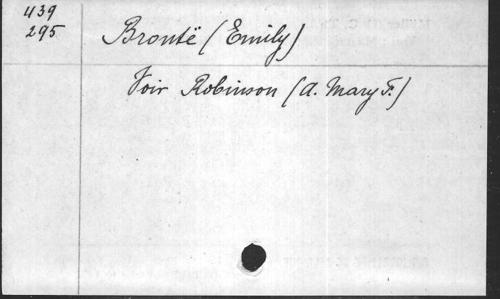 439
295
Brontë (Emily)
Voir Robinson (A. Mary F.)